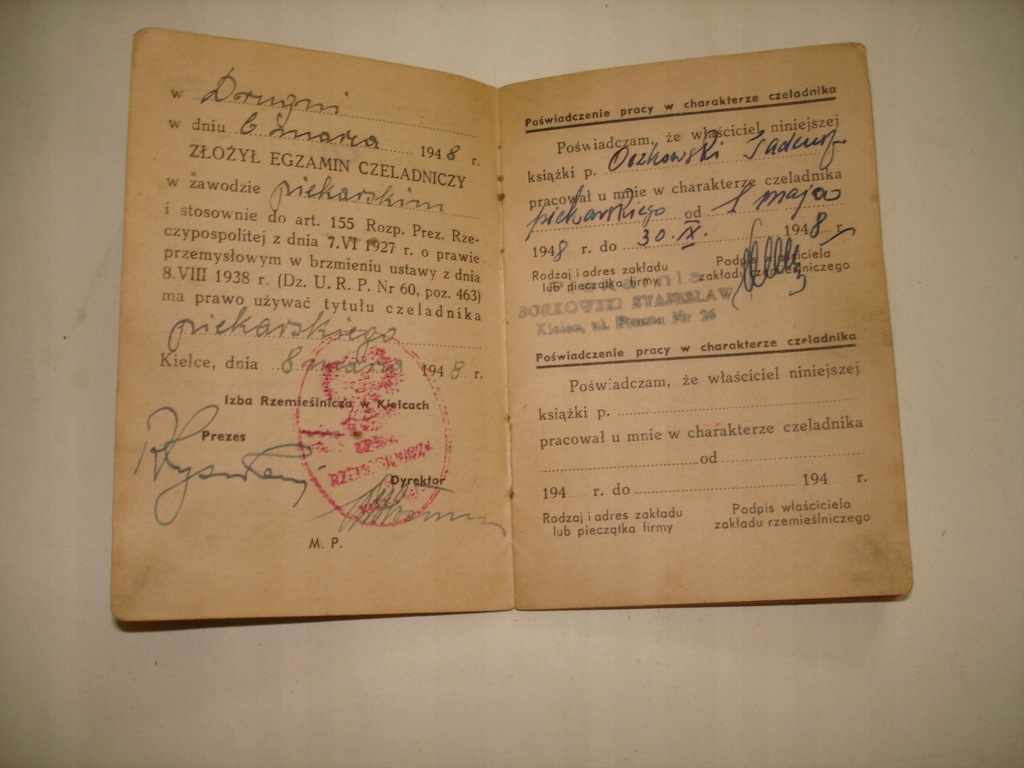 w Drugni
w dniu 6 marca 1948 r.
ZŁOŻYŁ EGZAMIN CZELADNICZY
w zawodzie piekarskim
i stosownie do art. 155 Rozp. Prez. Rze-
czypospolitej z dnia 7.VI 1927 r. o prawie
przemysłowym w brzmieniu ustawy z dnia
8.VIII 1938 r. (Dz. U. R. P. Nr 60, poz. 463)
ma prawo używać tytułu czeladnika
piekarskiego
Kielce, dnia 8 marca 1948 r.
Izba Rzemieślnicza w Kielcach
Prezes
Dyrektor
M. P.
Poświadczenie pracy w charakterze czeladnika
Poświadczam, że właściciel niniejszej
książki p. Oczkowski Tadeusz
pracował u mnie w charakterze czeladnika
piekarskiego od 1 maja
1948 r. do 30.IX. 1948 r.
Rodzaj i adres zakładu
lub pieczątka firmy
Podpis właściciela
zakładu rzemieślniczego
BORKOWSKI STANISŁAW
Kielce, ul. Prosta Nr 26
Poświadczenie pracy w charakterze czeladnika
Poświadczam, że właściciel niniejszej
książki p.
pracował u mnie w charakterze czeladnika
od
194 r. do 194 r.
Rodzaj i adres zakładu
lub pieczątka firmy
Podpis właściciela
zakładu rzemieślniczego